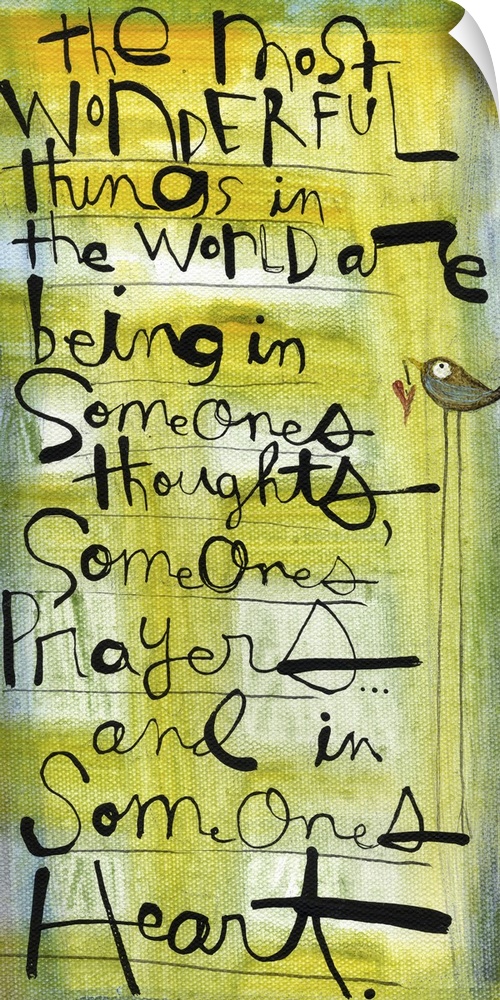 the most
WONDERFUL
things in
the WORLD are
being in
SomeOnes
thoughts,
SomeOnes
Prayers...
and in
SomeOnes
Heart.